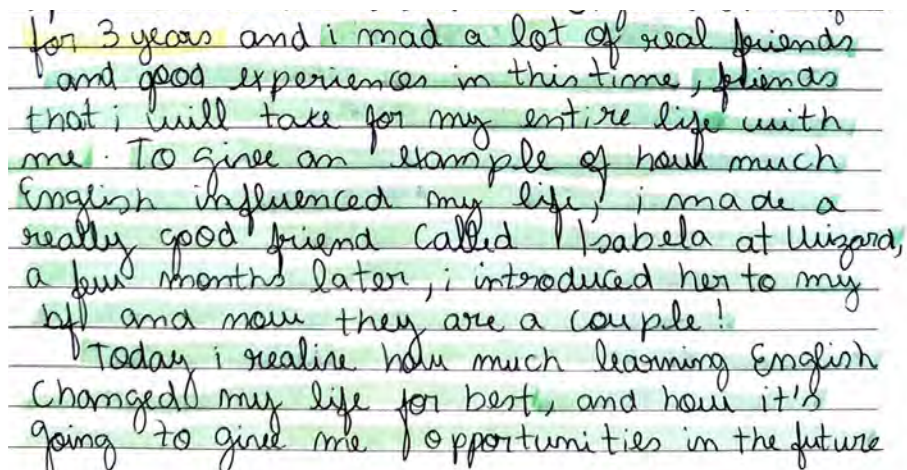 for 3 years and i mad a lot of real friends
and good experiences in this time, friends
that i will take for my entire life with
me. To give an example of how much
English influenced my life, i made a
really good friend called Isabela at Wizard,
a few months later, i introduced her to my
bff and now they are a couple!
Today i realize how much learning English
Changed my life for best, and how it's
going to give me opportunities in the future